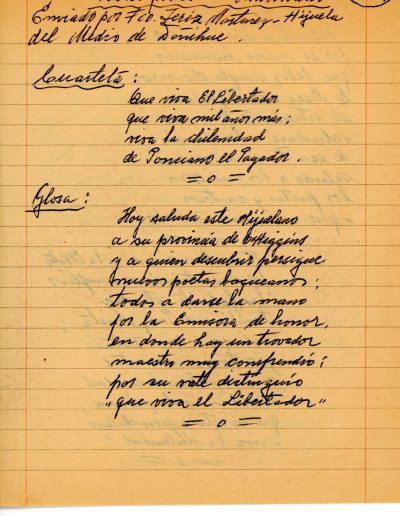 Enviado por Fco. Jeriz Martinez - Hijuela
del Medio de Doñihue.
Cuarteta :
Que viva El Libertador
que viva mil años más ;
viva la chilenidad
de Ponciano el Payador .
Glosa :
Hoy saluda este Hijuelano
a su provincia de O'Higgins
y a quien descubrir persigue
nuevos poetas baqueanos ;
todos a darse la mano
por la Emisora de honor,
en donde hay un trovador
maestro muy comprendió ;
por su vate distinguío
"que viva el Libertador"